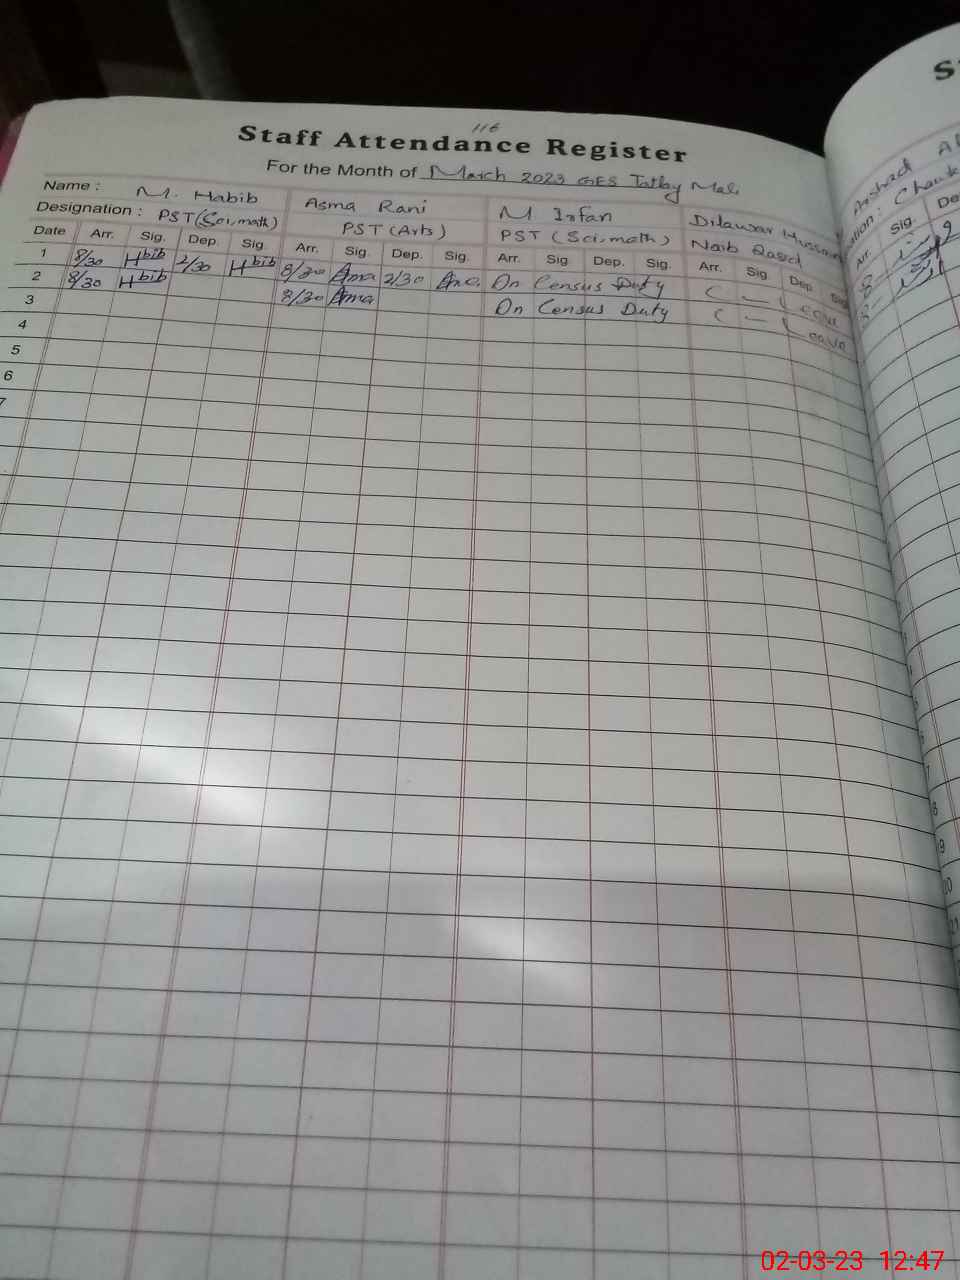 116
Staff Attendance Register
For the Month of March 2023 GES
Name : M. Habib Asma Rani M Irfan Dilawar Hussain
Designation : PST (Sci, math) PST (Arts) PST (Sci, math) Naib Qasid
Date Arr. Sig. Dep. Sig. Arr. Sig. Dep. Sig. Arr. Sig Dep. Sig. Arr. Sig Dep. Sig
1 8/30 Hbib 2/30 Hbib 8/30 Asma 2/30 On Census Duty C — Leave
2 8/30 Hbib 8/30 Asma On Census Duty C — Leave
3
4
5
6
7
Arshad
Arr. Sig. De
8
9
02-03-23 12:47